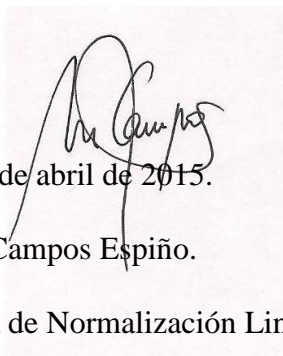 Campos
de abril de 2015.
Campos Espiño.
de Normalización Lin